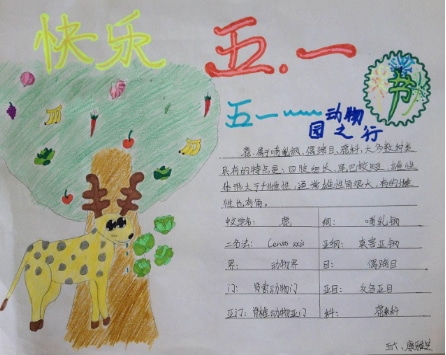 快乐 五.一
五一
动物
园之行
鹿,属于哺乳纲,偶蹄目,鹿科,大多数种类
具有的特点是:四肢细长,尾巴较短,雄性
体型大于雌性,通常雄性有角,有的雌
性也有角。
中文学名: 鹿 纲: 哺乳纲
二名法: Cervus axis 亚纲: 真兽亚纲
界: 动物界 目: 偶蹄目
门: 脊索动物门 亚目:
亚门: 脊椎动物亚门 科: 鹿科